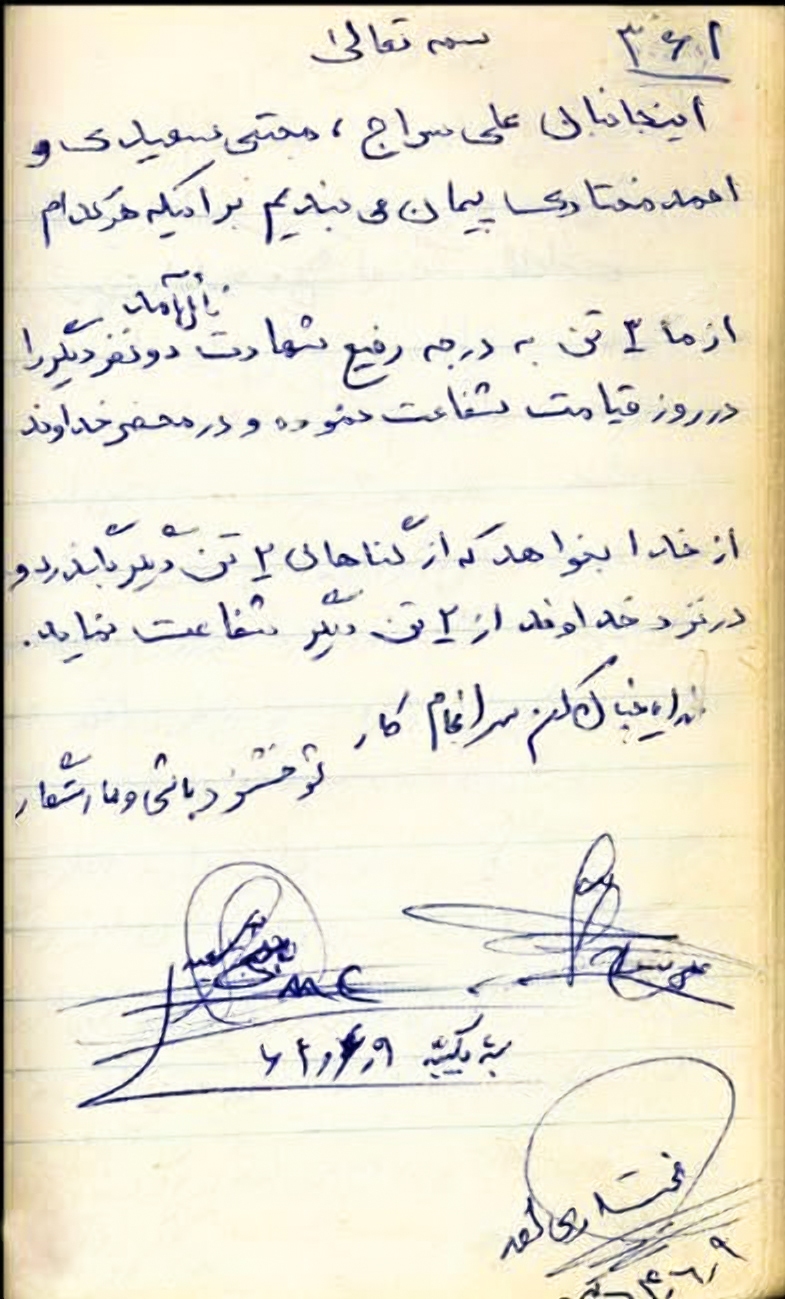 بسمه تعالی
اینجانبان علی سراج ، مجتبی سعیدی و
احمد مختاری پیمان می بندیم براینکه هرکدام
نائل آمد
از ما ۳ تن به درجه رفیع شهادت دو نفر دیگر را
در روز قیامت شفاعت نموده و در محضر خداوند
از خدا بخواهد که از گناهان ۲ تن دیگر بگذرد و
در نزد خداوند از ۲ تن دیگر شفاعت نماید.
خدایا چنان کن سرانجام کار
تو خشنود باشی و ما رستگار
علی سراج
مجتبی سعیدی
مختاری احمد